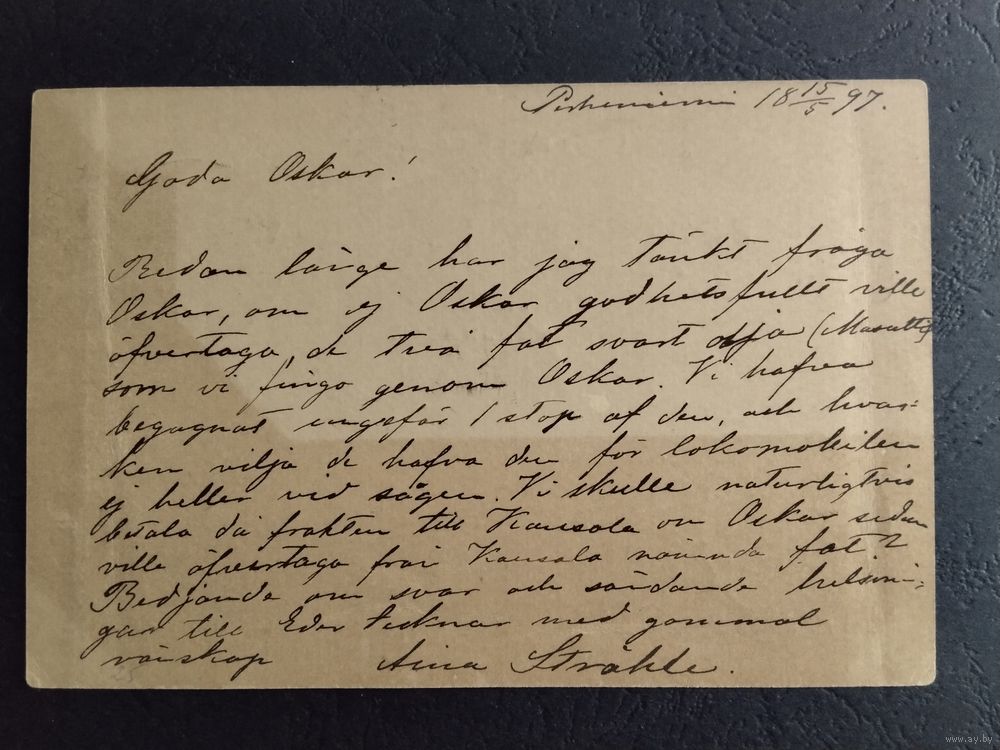 Perheniemi 18 15/5 97.
Goda Oskar!
Redan länge har jag tänkt fråga
Oskar, om ej Oskar godhetsfullt ville
öfvertaga, de två fat svart olja
som vi fingo genom Oskar. Vi hafva
begagnat ungefär 1 stop af den, och hvar-
ken vilja de hafva den för lokomobilen
ej heller vid sågen. Vi skulle naturligtvis
betala då frakten till Kausala om Oskar sedan
ville öfvertaga från Kausala nämnda fat?
Bedjande om svar och sändande helsnin-
gar till Eder tecknar med gammal
vänskap Aina Stråhle.
www.ay.by